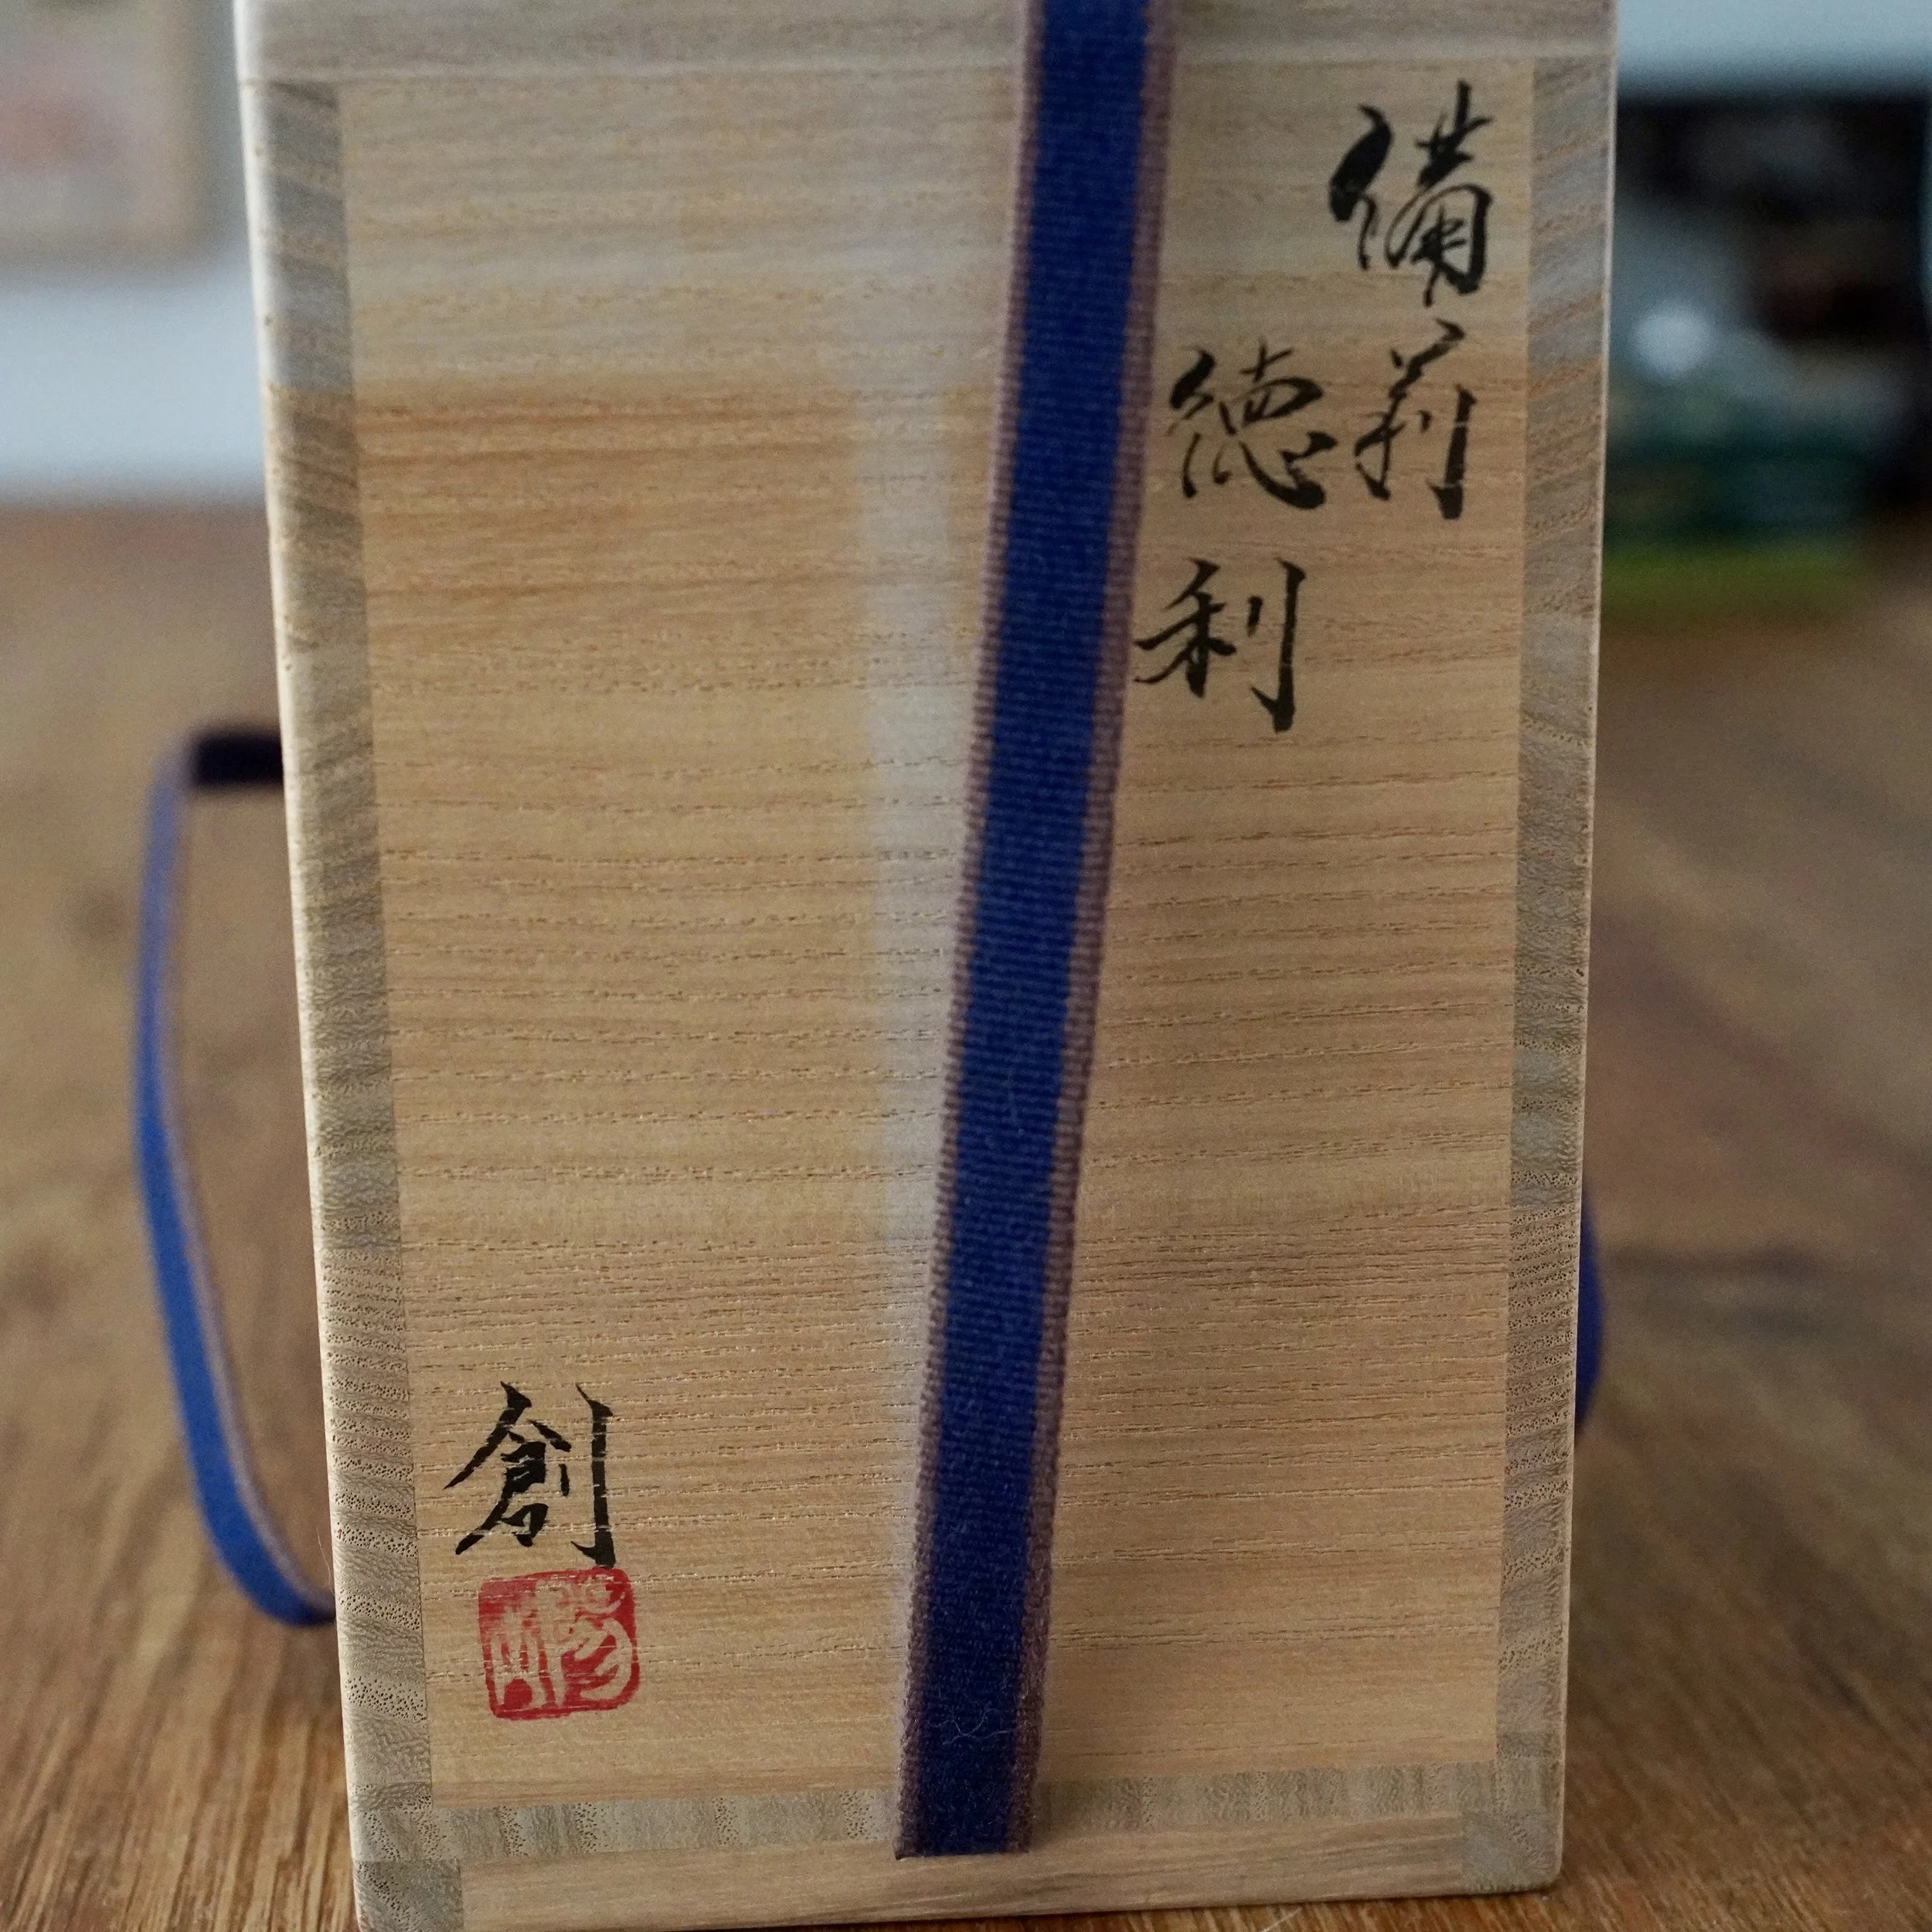 備前
徳利
創